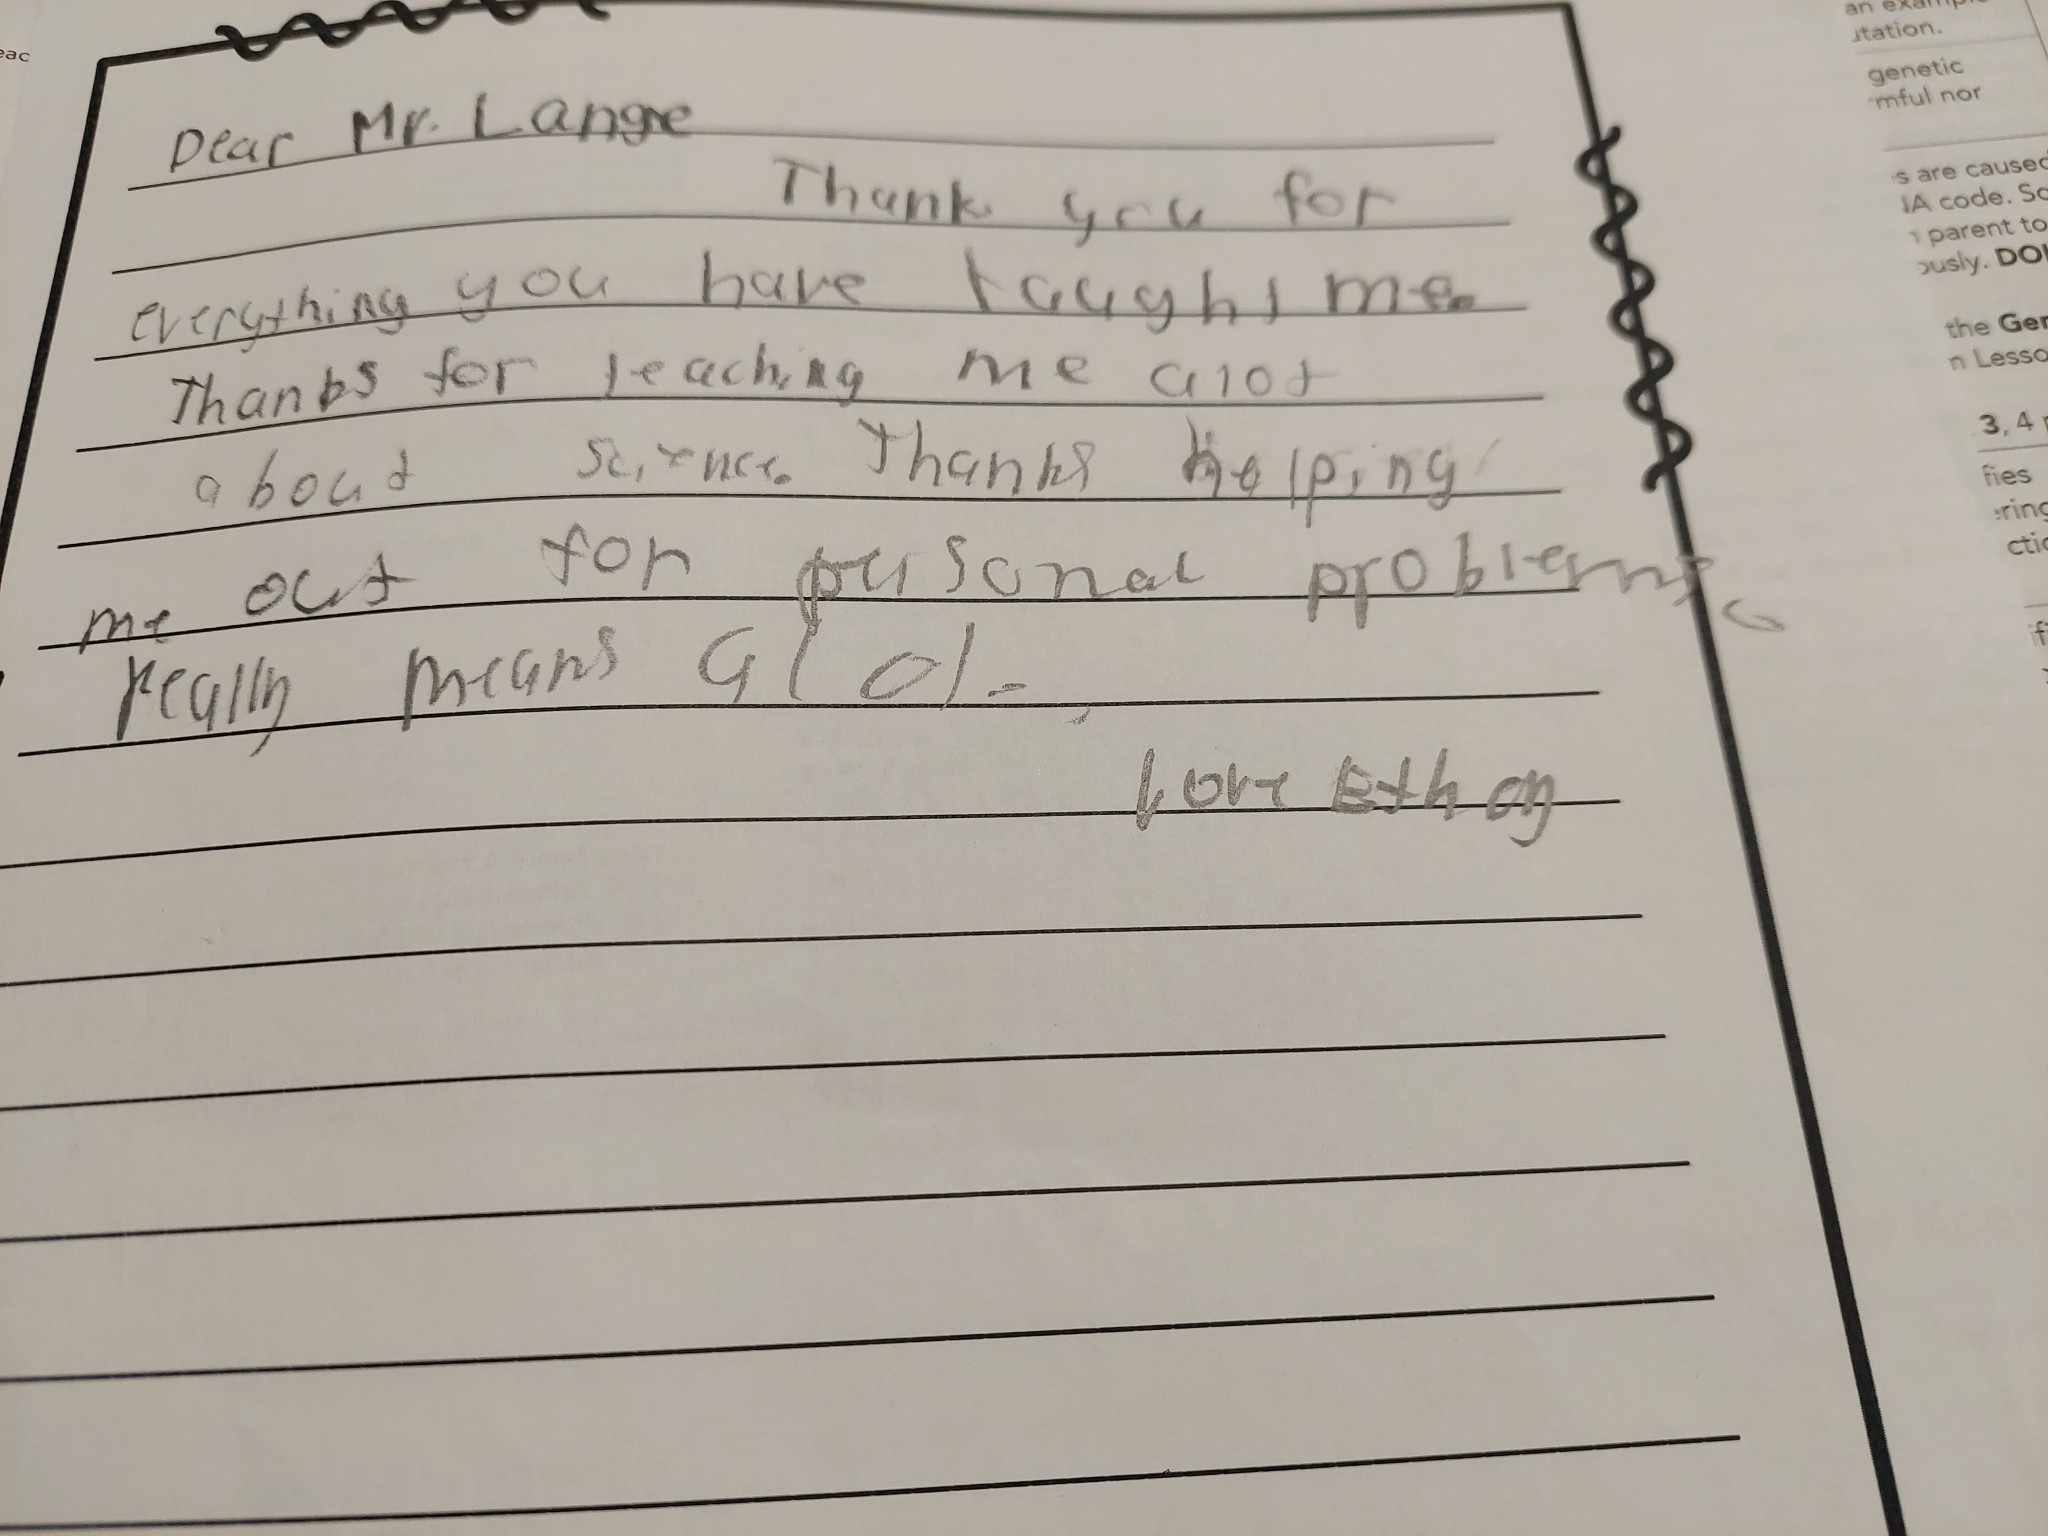 eac
Dear Mr. Lange
Thank you for
everything you have taught me.
Thanks for teaching me alot
about science. Thanks helping
me out for personal problems,
really means alot.
Love Ethan
tation.
genetic
mful nor
s are caused
code. So
parent to
ously.
the
n
3, 4
fies